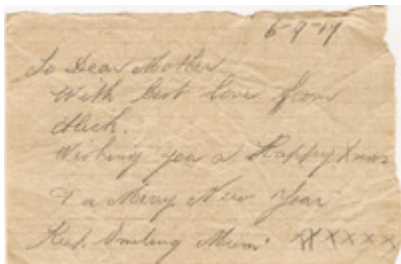 6-9-17
To Dear Mother
With best love from
Alick.
Wishing you a Happy Xmas
& a Merry New Year
Keep Smiling Mum. XXXXXX